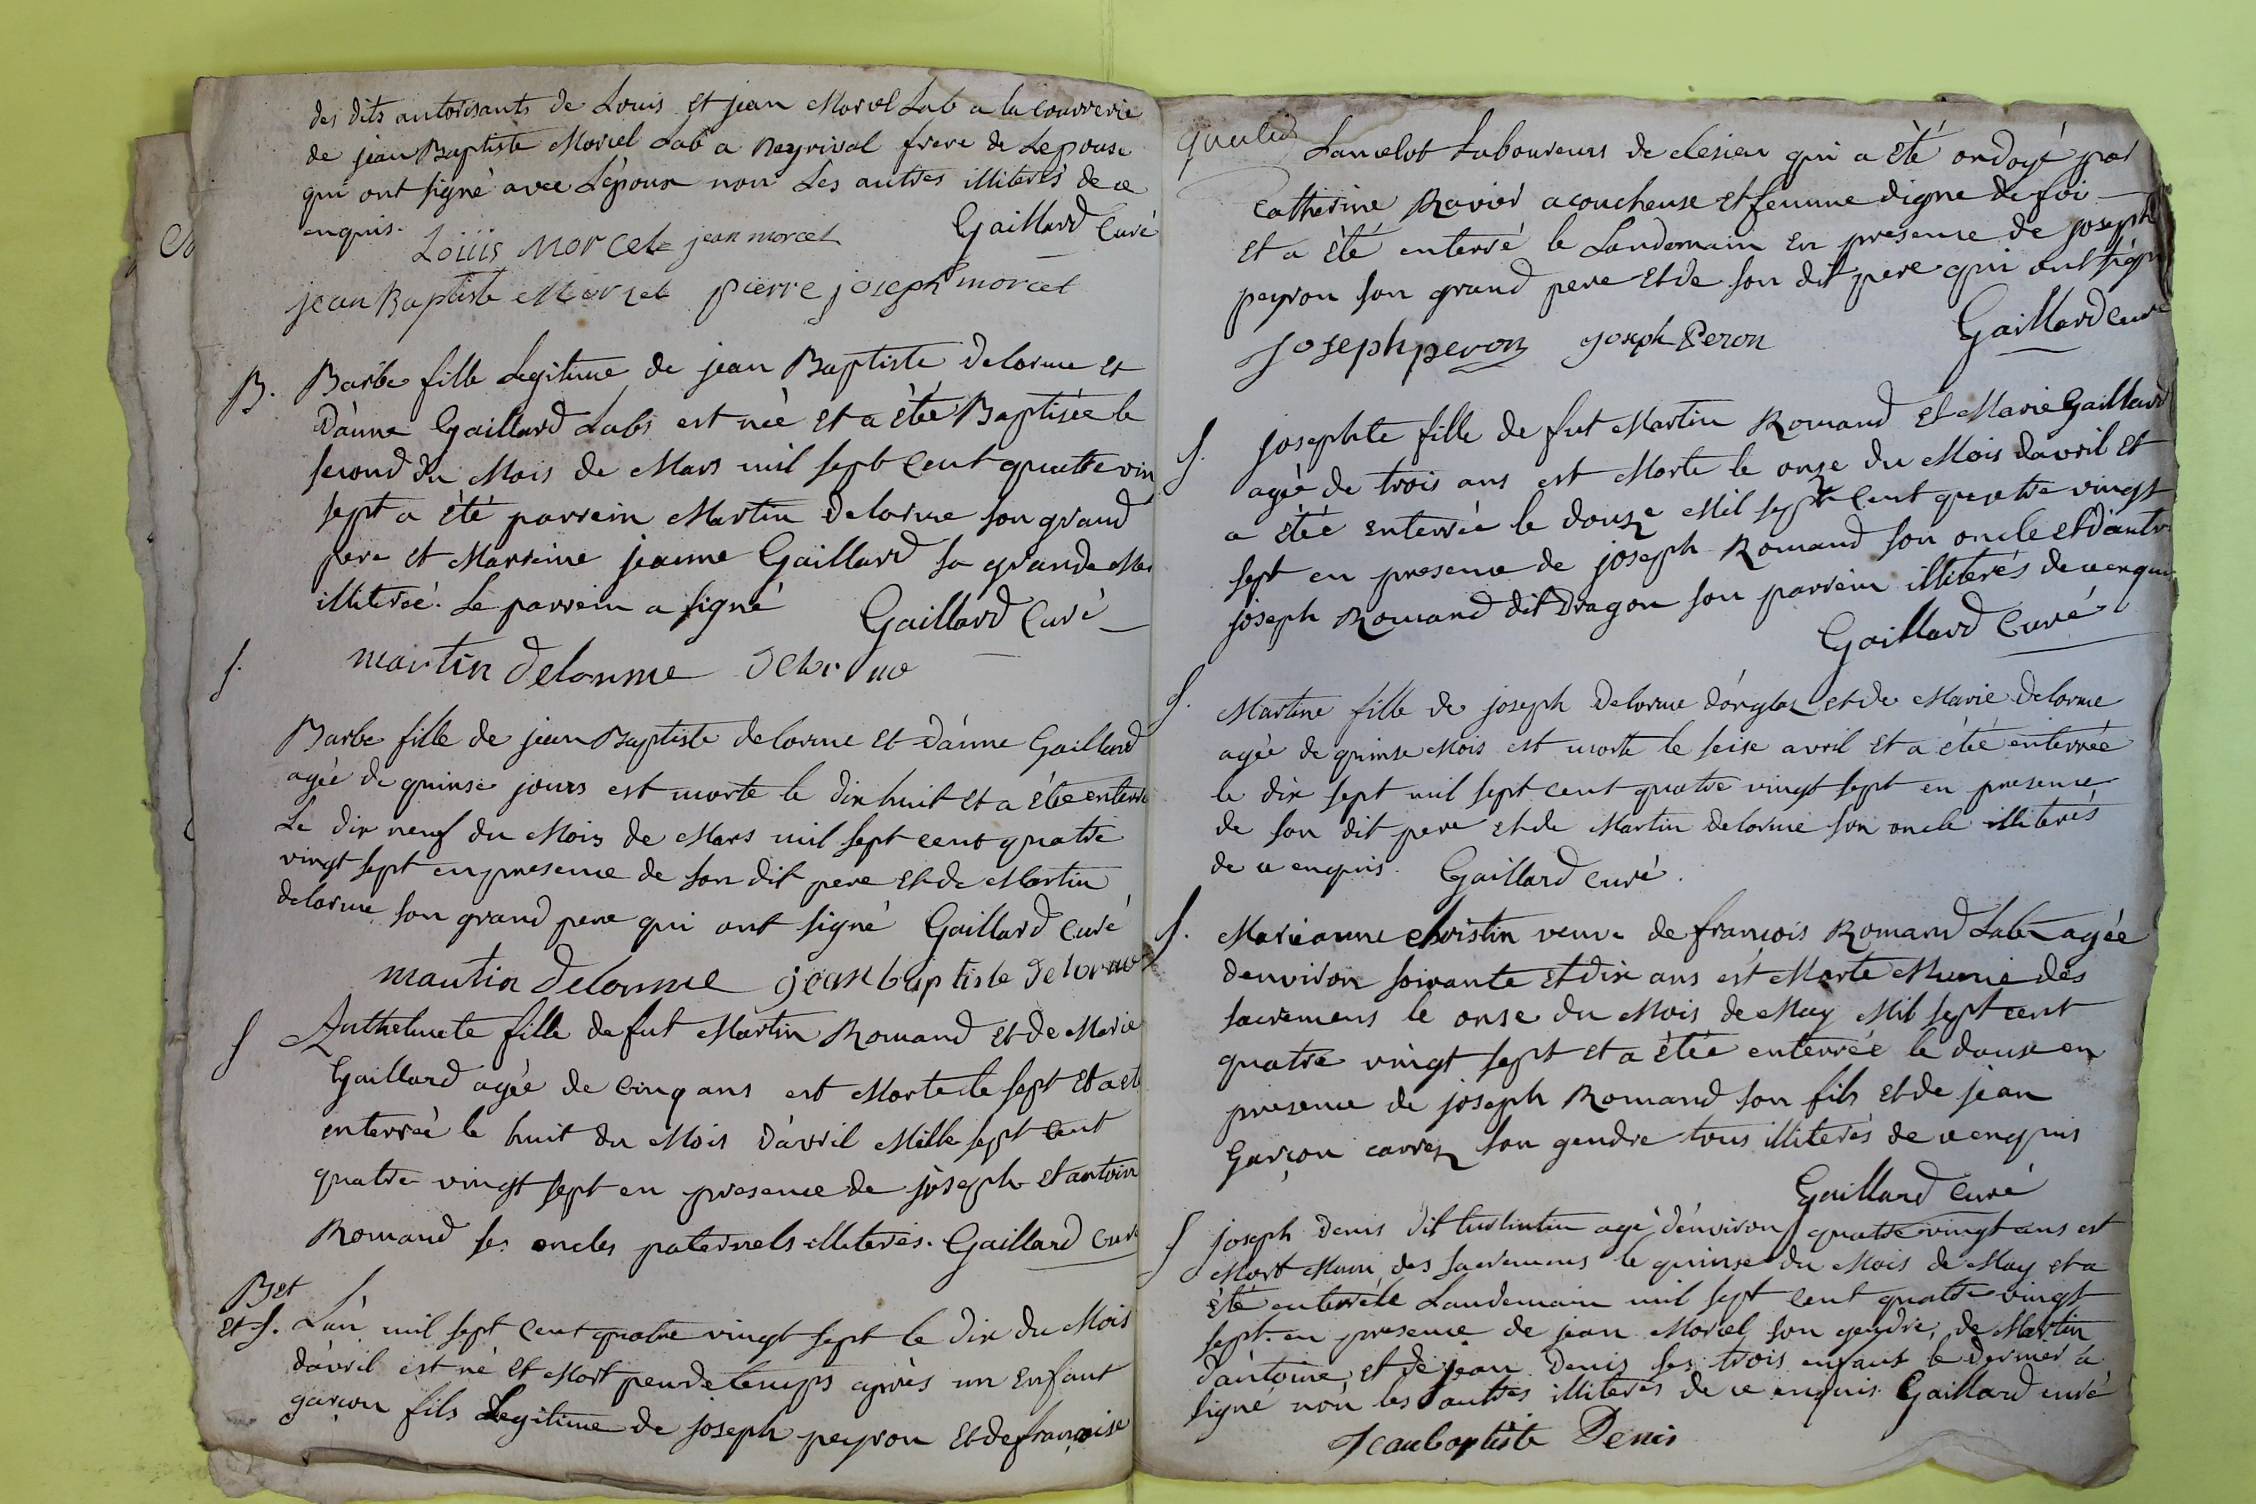 des dits autorisants de Louis et jean Morcel Lab a la courrerie
de jean Baptiste Morcel Lab a Reyrivol frere de Lepouse
qui ont signé avec L'époux non Les autres illiterés de ce
enquis. Gaillard Curé
Loüis Morcel jean morcel
jean Baptiste Morcel pierre joseph morcel
B. Barbe fille Legitime de jean Baptiste Delorme et
D'anne Gaillard Labs est née et a étée Baptisée le
second du Mois de Mars mil sept Cent quattre vin
sept a été parrein Martin Delorme son grand
pere et Marreine jeanne Gaillard sa grande Me
illiterée. Le parrein a signé Gaillard Curé
S. martin Delorme
Barbe fille de jean Baptiste delorme et D'anne Gaillard
agée de quinse jours est morte le dix huit et a étée enterré
Le dix neuf du Mois de Mars mil sept cent quatre
vingt sept en presence de son dit pere et de Martin
delorme son grand pere qui ont signé Gaillard Curé
martin Delorme jean baptiste Delorme
S Anthelmete fille de fut Martin Romand et de Marie
Gaillard agée de Cinq ans est Morte le sept et a et
enterrée le huit du Mois D'avril Mille sept Cent
quatre vingt sept en presence de joseph et antoin
Romand ses oncles paternels illiterés. Gaillard Curé
Bet
et S. L'an mil sept Cent quatre vingt sept le Dix du Mois
D'avril est né et Mort peu de temps après un Enfant
garçon fils Legitime de joseph peyron et de françoise
Lancelot Laboureurs de clesieu qui a été ondoyé par
Catherine Ravier acoucheuse et femme digne de foi
et a été enterré le Landemain en presence de joseph
peyron son grand pere et de son dit pere qui ont sign
Joseph peron joseph Peron Gaillard Curé
S. josephte fille de fut Martin Romand et Marie Gaillard
agée de trois ans est Morte le onse du Mois davril et
a étée enterrée le douze Mil sept Cent quatre vingt
sept en presence de joseph Romand son oncle et d'autr
joseph Romand dit Dragon son parrein illiterés de ce enquis
Gaillard Curé
S. Martine fille de joseph Delorme d'orglas et de Marie Delorme
agée de quinse Mois est morte le seise avril et a étée enterrée
le dix sept mil sept cent quatre vingt sept en presence
de son dit pere et de Martin delorme son oncle illiterés
de ce enquis. Gaillard curé.
S. Marieanne christin veuve de françois Romand Lab agée
denviron soixante et dix ans est Morte Munie des
sacremens le onse du Mois de May Mil sept cent
quatre vingt sept et a étée enterrée le douse en
presence de joseph Romand son fils et de jean
Garçon carrez son gendre tous illiterés de ce enquis
Gaillard Curé
S joseph Denis dit agé d'environ quatre vingt ans est
Mort Muni des sacremens le quinse du Mois de May et a
été enterré le Landemain mil sept Cent quatre vingt
sept. en presence de jean Morcel son gendre, de Martin
d'antoine et de jean Denis ses trois enfans le dernier a
signé non les autres illiterés de ce enquis Gaillard curé
Jeanbaptiste Denis